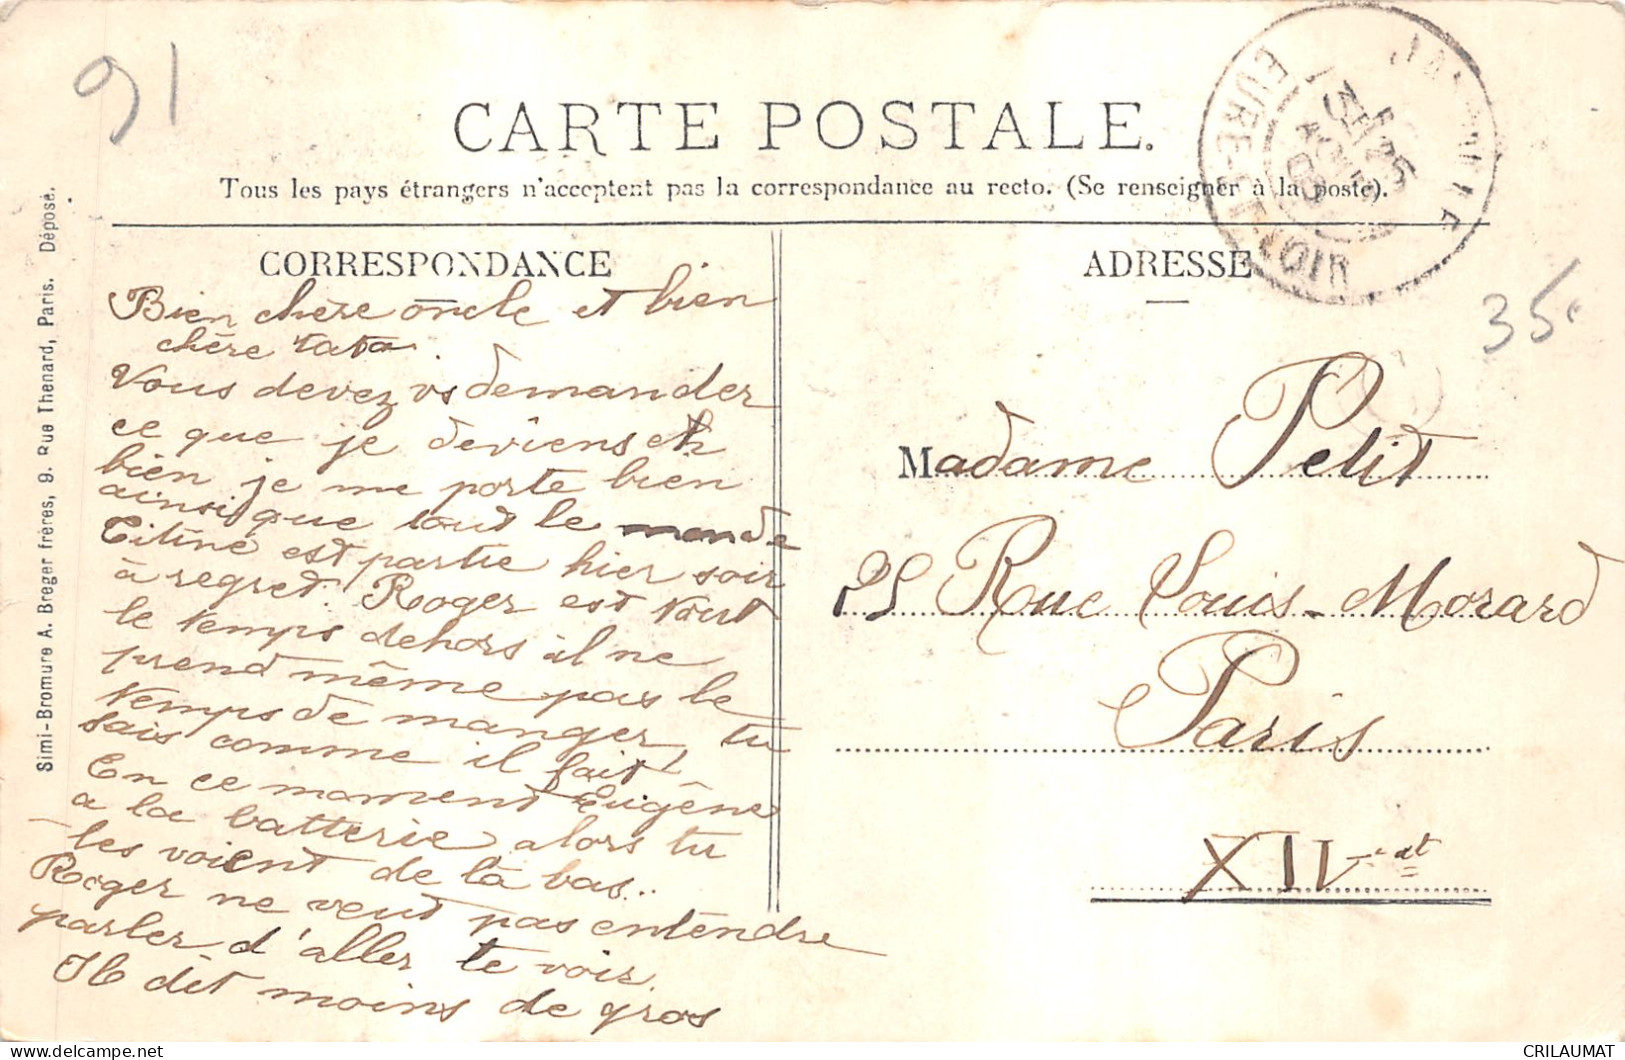 91
CARTE POSTALE.
Tous les pays étrangers n'acceptent pas la correspondance au recto. (Se renseigner à la poste).
CORRESPONDANCE
Bien chère oncle et bien
chère tata.
Vous devez vs demander
ce que je deviens eh
bien je me porte bien
ainsi que tout le monde
Titine est partie hier soir
à regret. Roger est tout
le temps dehors il ne
prend même pas le
temps de manger, tu
sais comme il fait
En ce moment Eugène
a la batterie alors tu
les voient de la bas..
Roger ne veut pas entendre
parler d'aller te voir.
Il dit moins de gros
ADRESSE
EURE-ET-LOIR
35
Madame Petit
25 Rue Louis-Morard
Paris
XIV
Simi-Bromure A. Breger frères, 9. Rue Thenard, Paris. Déposé.
CRILAUMAT